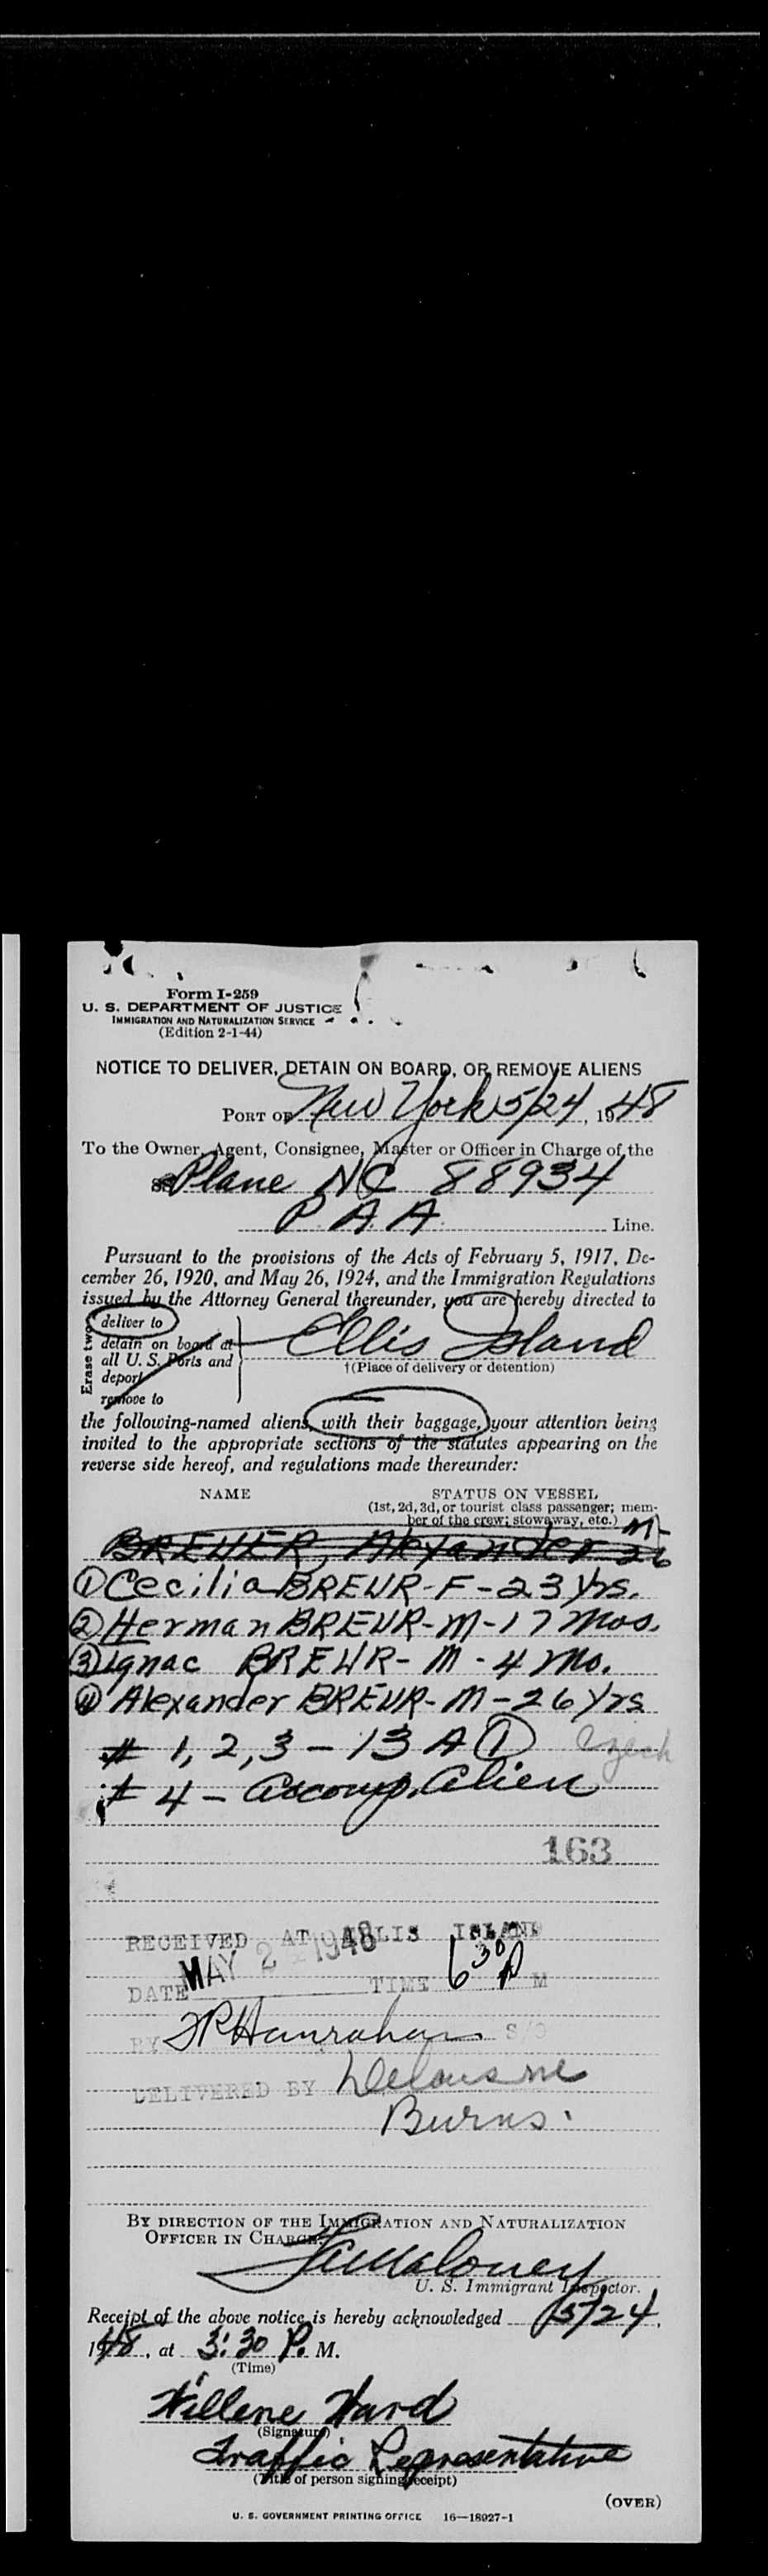 Form I-259
U. S. DEPARTMENT OF JUSTICE
IMMIGRATION AND NATURALIZATION SERVICE
(Edition 2-1-44)
NOTICE TO DELIVER, DETAIN ON BOARD, OR REMOVE ALIENS
PORT OF New York 5/24, 1948
To the Owner, Agent, Consignee, Master or Officer in Charge of the
Plane NC 88934
P A A Line.
Pursuant to the provisions of the Acts of February 5, 1917, De-
cember 26, 1920, and May 26, 1924, and the Immigration Regulations
issued by the Attorney General thereunder, you are hereby directed to
Erase two
deliver to
detain on board at
all U. S. Ports and
deport
remove to
Ellis Island
†(Place of delivery or detention)
the following-named aliens, with their baggage, your attention being
invited to the appropriate sections of the statutes appearing on the
reverse side hereof, and regulations made thereunder:
NAME STATUS ON VESSEL
(1st, 2d, 3d, or tourist class passenger; mem-
ber of the crew; stowaway, etc.)
BREUER, Alexander M-26
① Cecilia BREUR-F-23 Yrs.
② Herman BREUR-M-17 Mos.
③ Ignac BREUR-M-4 Mo.
④ Alexander BREUR-M-26 Yrs
# 1, 2, 3 - 13 A ① Czech
# 4 - accomp. alien
163
RECEIVED AT ELLIS ISLAND
DATE MAY 2 1948 TIME 6 30 P M
BY Hanrahan S/O
DELIVERED BY
Burns.
BY DIRECTION OF THE IMMIGRATION AND NATURALIZATION
OFFICER IN CHARGE:
Maloney
U. S. Immigrant Inspector.
Receipt of the above notice is hereby acknowledged 5/24,
1948, at 3:30 P. M.
(Time)
Willene Ward
(Signature)
Traffic Representative
(Title of person signing receipt)
(OVER)
U. S. GOVERNMENT PRINTING OFFICE 16—18027-1